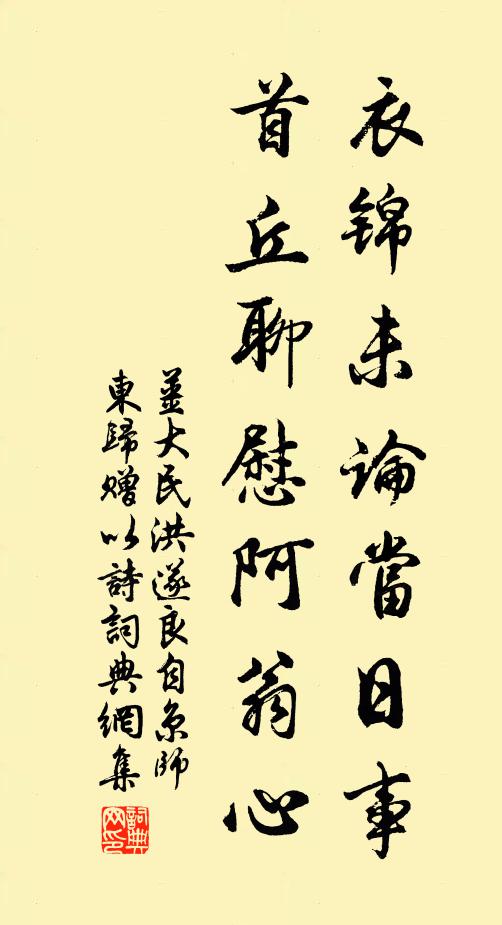 衣錦未論當日事
首丘聊慰阿翁心
姜大民洪遂良自京師
東歸贈以詩詞典網集
詞典網印